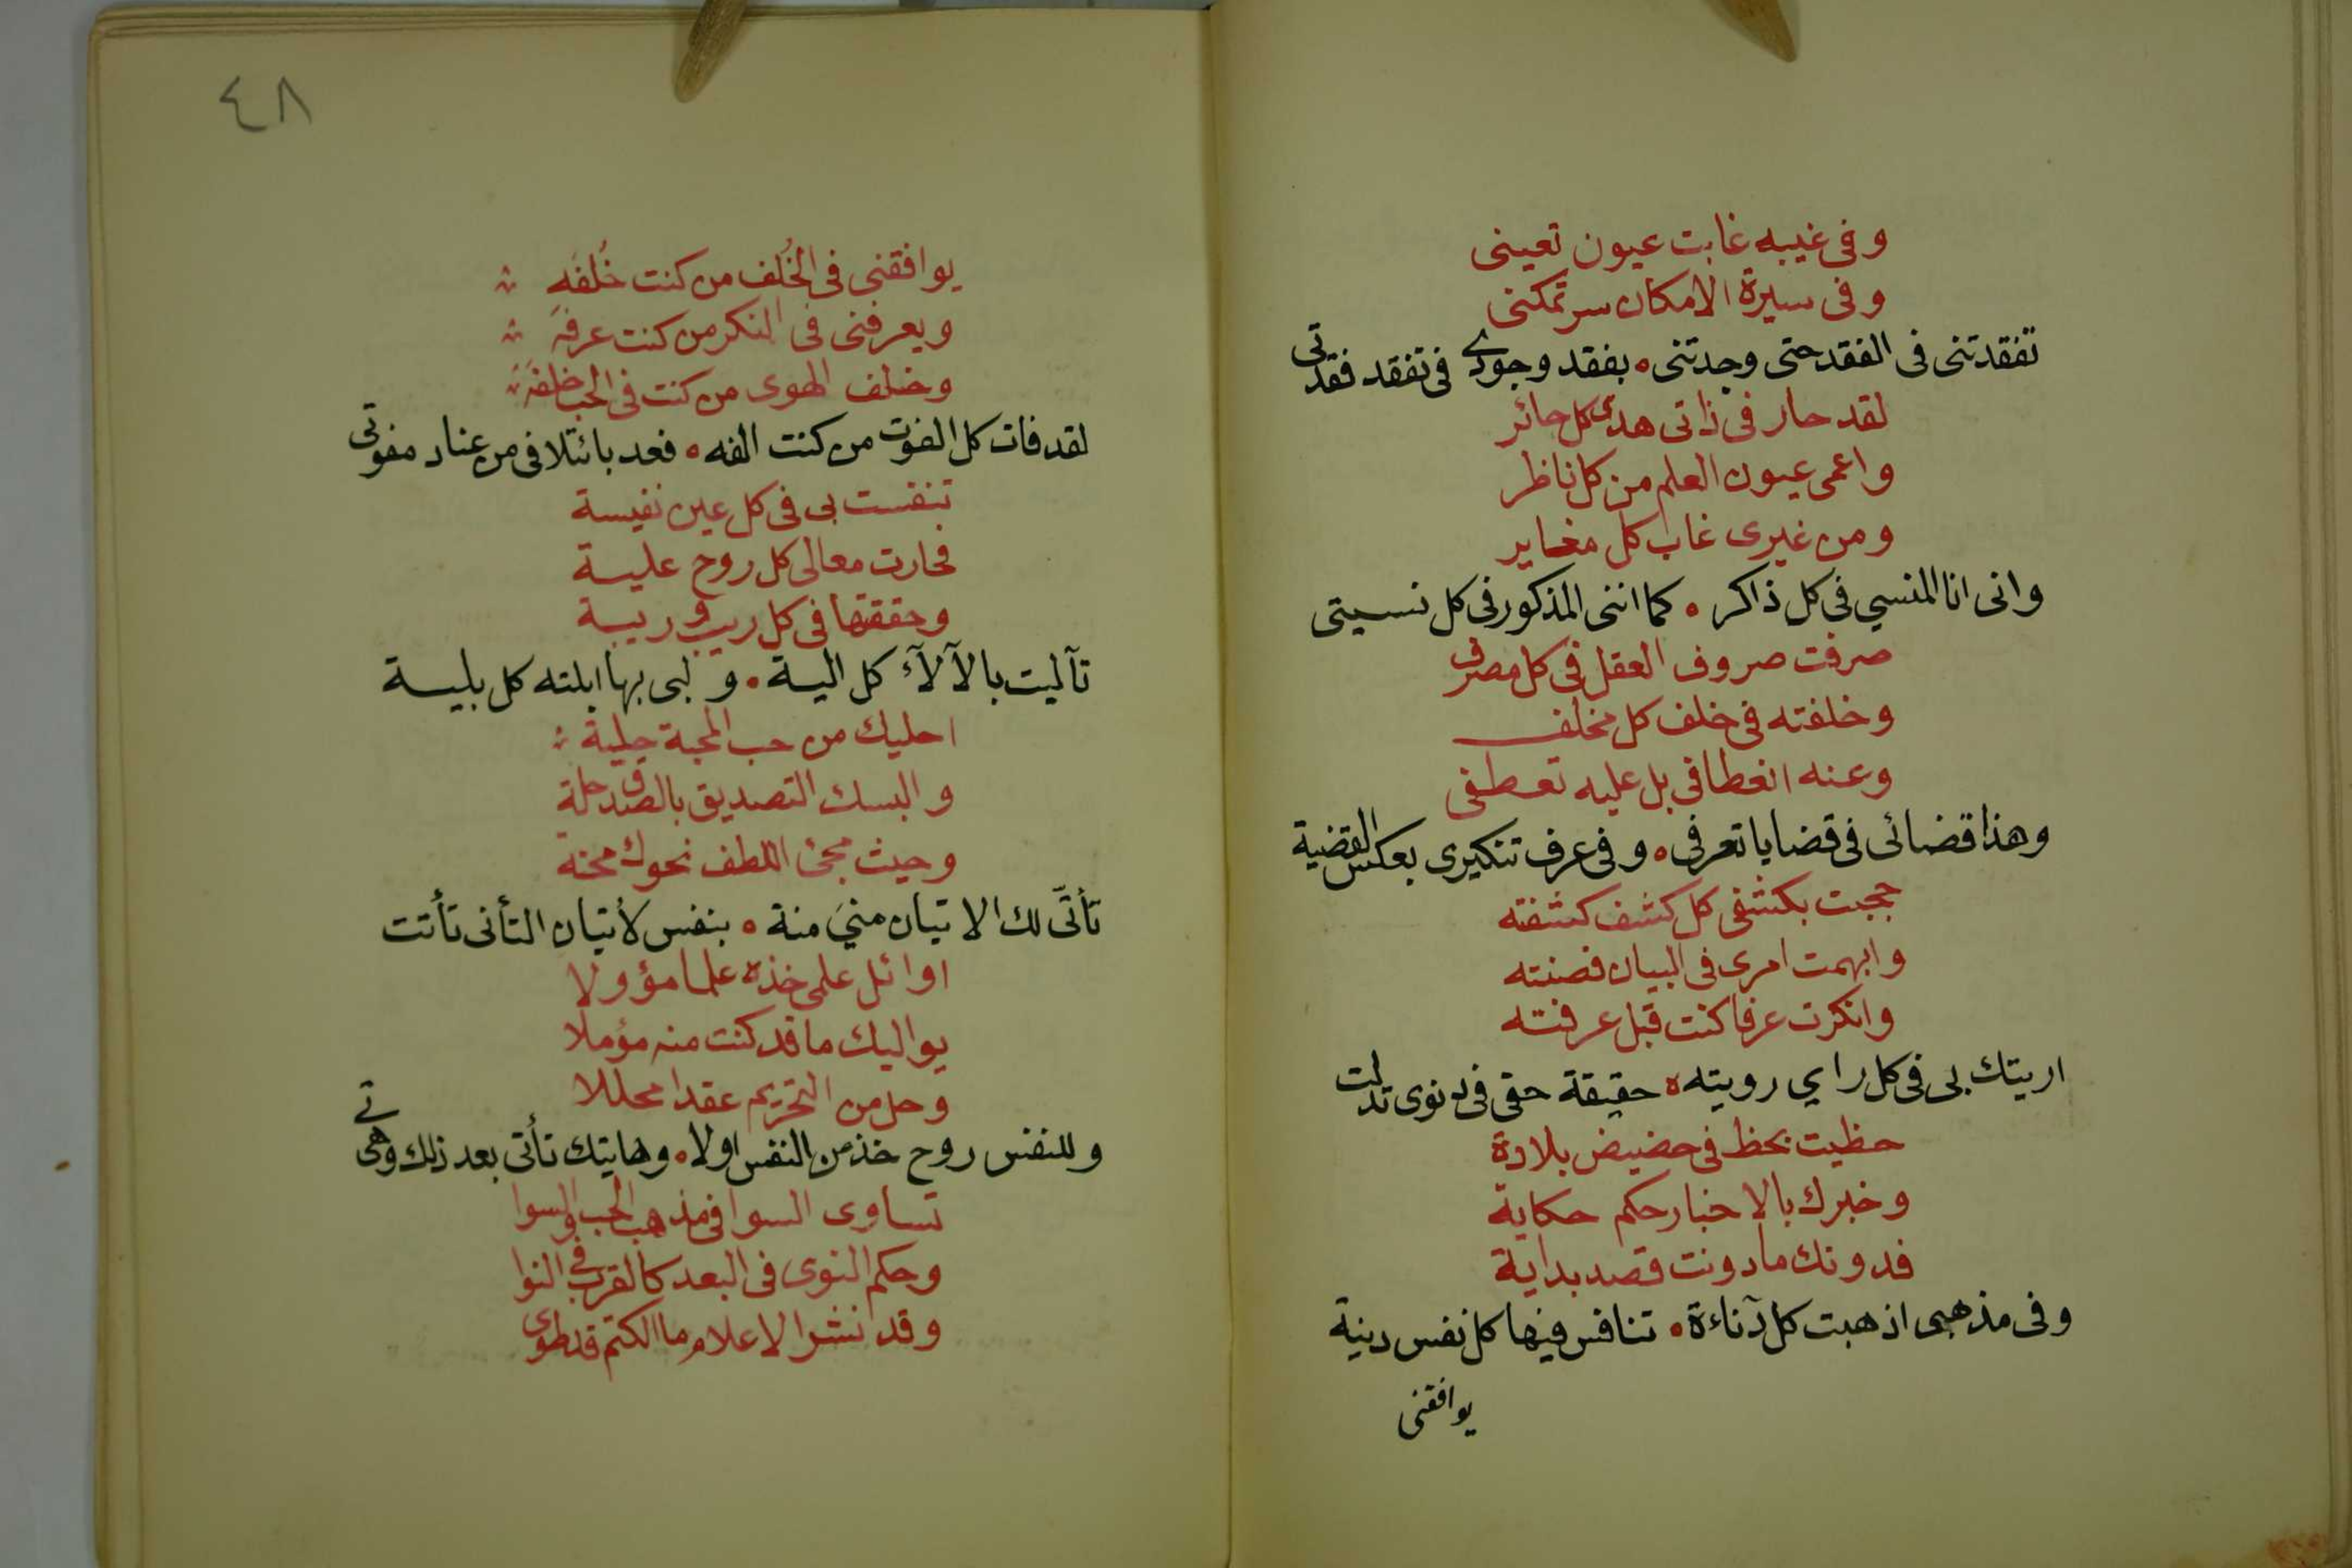 وفى غيبه غابت عيون تعينى
وفى سيرة الامكان سر تمكنى
تفقدتنى فى الفقد حتى وجدتنى ه بفقد وجودى فى تفقد فقدتى
لقد حار فى ذاتى هدى كل حائر
واعمى عيون العلم من كل ناظر
ومن غيرى غاب كل مغاير
وانى انا المنسي فى كل ذاكر ه كما اننى المذكور فى كل نسيتى
صرفت صروف العقل فى كل مصرف
وخلفته فى خلف كل مخلف
وعنه انعطافى بل عليه تعطفى
وهذا قضائى فى قضايا تعرفى ه وفى عرف تنكيرى بعكس القضية
حجبت بكشفى كل كشف كشفته
وابهمت امرى فى البيان فصنته
وانكرت عرفا كنت قبل عرفته
اريتك بى فى كل راي رويته ه حقيقة حقى فى دنوى تدلت
حظيت بحظ فى حضيض بلادة
وخبرك بالاخبار حكم حكاية
فدونك ما دونت قصد بداية
وفى مذهبى اذهبت كل دناءة ه تنافس فيها كل نفس دنية
يوافقنى
٤٨
يوافقنى فى الخُلف من كنت خُلفَه
ويعرفنى فى النكر من كنت عرفه
وخلف الهوى من كنت فى الحب خلفه
لقد فات كل الفوت من كنت الفه ه فعد بائتلافى من عناد مفوتى
تنفست بى فى كل عين نفيسة
فحارت معالى كل روح عليسة
وحققتها فى كل ريب وريبة
تآليت بالآلآء كل الية ه ولبى بها ابلته كل بلية
احليك من حب المحبة حلية
والبسك التصديق بالصدق حلة
وحيث مجئ اللطف نحوك محنة
تأتّى لك الاتيان منيَ منة ه بنفس لأتيان التأنى تأتت
اوائل علمى خذه علما مؤولا
يواليك ما قد كنت منه مؤملا
وحل من التحريم عقدا محللا
وللنفس روح خذ من النفس اولا ه وهايتك تأتى بعد ذلك وهى تى
تساوى السوا فى مذهب الحب والسوا
وحكم النوى فى البعد كالقرب فى النوا
وقد انشر الاعلام ما الكتم قد طوى